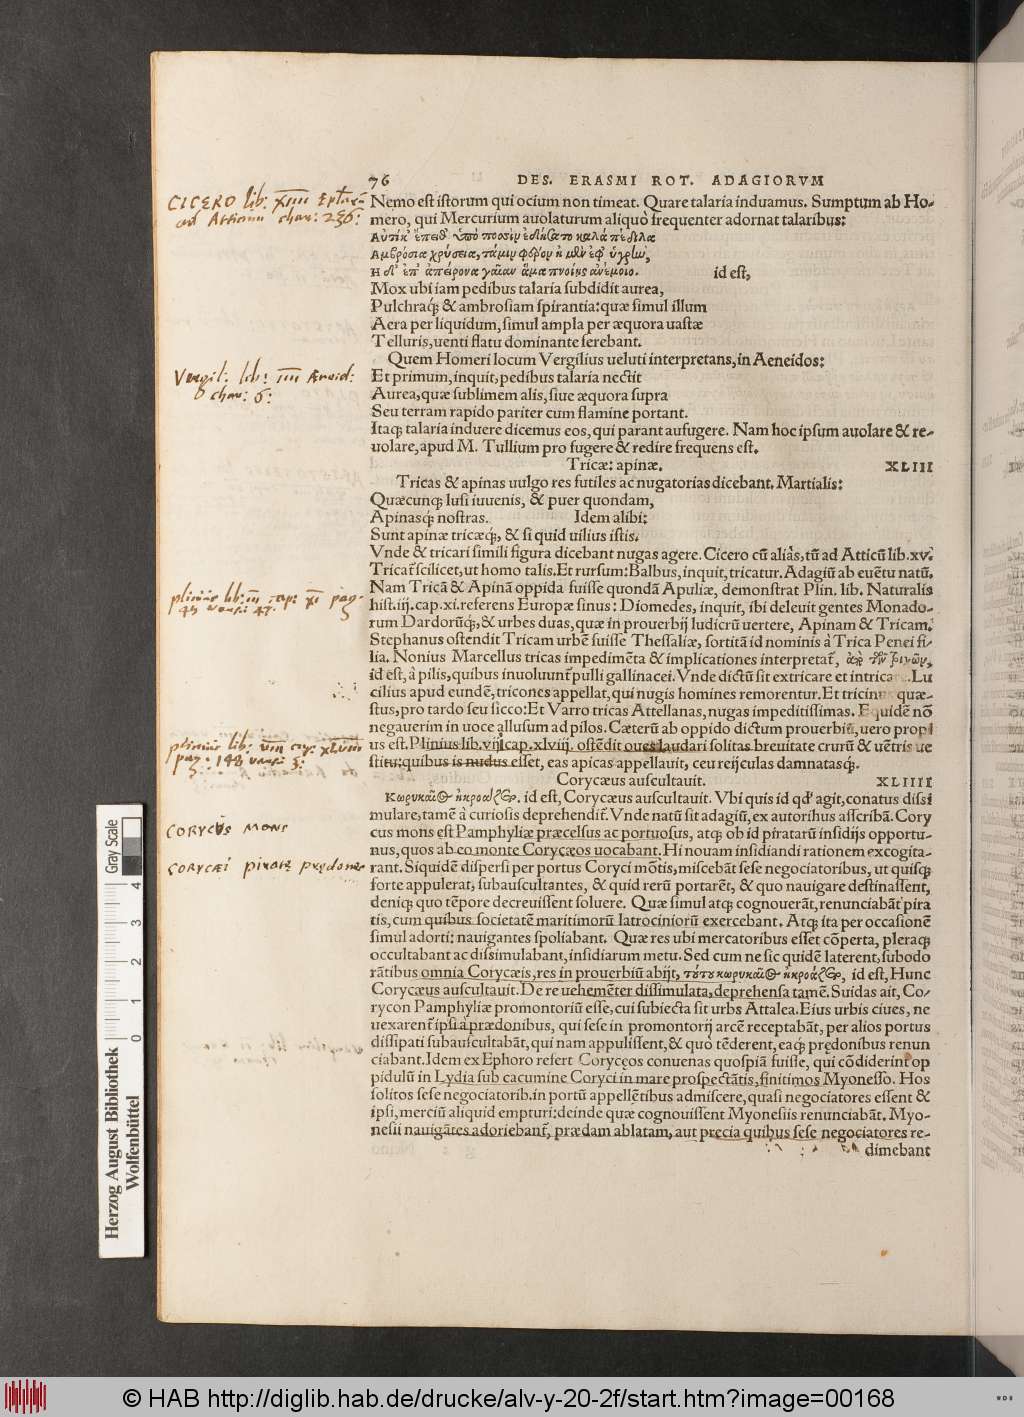 76 DES. ERASMI ROT. ADAGIORVM
Nemo est istorum qui ocium non timeat. Quare talaria induamus. Sumptum ab Ho-
mero, qui Mercurium auolaturum aliquò frequenter adornat talaribus:
Αὐτίκ' ἔπειθ' ὑπὸ ποσσὶν ἐδήσατο καλὰ πέδιλα
Αμβρόσια χρύσεια, τά μιν φέρον ἠ μὲν ἐφ' ὑγρὴν,
Η δ' ἐπ' ἀπείρονα γαῖαν ἅμα πνοιῇς ἀνέμοιο. id est,
Mox ubi iam pedibus talaria subdidit aurea,
Pulchraq; & ambrosiam spirantia: quæ simul illum
Aera per liquidum, simul ampla per æquora uastæ
Telluris, uenti flatu dominante ferebant.
Quem Homeri locum Vergilius ueluti interpretans, in Aeneidos:
Et primum, inquit, pedibus talaria nectit
Aurea, quæ sublimem alis, siue æquora supra
Seu terram rapido pariter cum flamine portant.
Itaq; talaria induere dicemus eos, qui parant aufugere. Nam hoc ipsum auolare & re-
uolare, apud M. Tullium pro fugere & redire frequens est.
Tricæ: apinæ. XLIII
Tricas & apinas uulgo res futiles ac nugatorias dicebant. Martialis:
Quæcunq; lusi iuuenis, & puer quondam,
Apinasq; nostras. Idem alibi:
Sunt apinæ tricæq;, & si quid uilius istis.
Vnde & tricari simili figura dicebant nugas agere. Cicero cū aliâs, tū ad Atticū lib. xv.
Tricat̃ scilicet, ut homo talis. Et rursum: Balbus, inquit, tricatur. Adagiū ab euētu natū.
Nam Tricā & Apinā oppida fuisse quondā Apuliæ, demonstrat Plin. lib. Naturalis
hist. iij. cap. xi. referens Europæ sinus: Diomedes, inquit, ibi deleuit gentes Monado-
rum Dardorūq;, & urbes duas, quæ in prouerbij ludicrū uertere, Apinam & Tricam.
Stephanus ostendit Tricam urbē fuisse Thessaliæ, sortitā id nominis à Trica Penei fi-
lia. Nonius Marcellus tricas impedimēta & implicationes interpretat̃, ἀπὸ τῶν τριχῶν,
id est, à pilis, quibus inuoluunt̃ pulli gallinacei. Vnde dictū sit extricare et intrica Lu
cilius apud eundē, tricones appellat, qui nugis homines remorentur. Et tricinus quæ-
stus, pro tardo seu sicco: Et Varro tricas Attellanas, nugas impeditissimas. Equidē nō
negauerim in uoce allusum ad pilos. Cæterū ab oppido dictum prouerbiū, uero propi
us est. Plinius lib. viij. cap. xlviij. ostēdit oues laudari solitas breuitate crurū & uētris ue
stitu: quibus is nudus esset, eas apicas appellauit, ceu reijculas damnatasq;.
Corycæus auscultauit. XLIIII
Κωρυκαῖος ἠκροάζετο. id est, Corycæus auscultauit. Vbi quis id qd' agit, conatus dissi
mulare, tamē à curiosis deprehendit̃. Vnde natū sit adagiū, ex autoribus ascribā. Cory
cus mons est Pamphyliæ præcelsus ac portuosus, atq; ob id piratarū insidijs opportu-
nus, quos ab eo monte Corycæos uocabant. Hi nouam insidiandi rationem excogita-
rant. Siquidē dispersi per portus Coryci mōtis, miscebāt sese negociatoribus, ut quisq;
forte appulerat, subauscultantes, & quid rerū portarēt, & quo nauigare destinassent,
deniq; quo tēpore decreuissent soluere. Quæ simul atq; cognouerāt, renunciabāt pira
tis, cum quibus societatē maritimorū latrociniorū exercebant. Atq; ita per occasionē
simul adorti: nauigantes spoliabant. Quæ res ubi mercatoribus esset cōperta, pleraq;
occultabant ac dissimulabant, insidiarum metu. Sed cum ne sic quidē laterent, subodo
rātibus omnia Corycæis, res in prouerbiū abijt, τούτου κωρυκαῖος ἠκροάζετο, id est, Hunc
Corycæus auscultauit. De re uehemēter dissimulata, deprehensa tamē. Suidas ait, Co-
rycon Pamphyliæ promontoriū esse, cui subiecta sit urbs Attalea. Eius urbis ciues, ne
uexarent̃ ipsi à prædonibus, qui sese in promontorij arcē receptabāt, per alios portus
dissipati subauscultabāt, qui nam appulissent, & quò tēderent, eaq; prędonibus renun
ciabant. Idem ex Ephoro refert Coryceos conuenas quospiā fuisse, qui cōdiderint op
pidulū in Lydia sub cacumine Coryci in mare prospectātis, finitimos Myonesso. Hos
solitos sese negociatorib. in portū appellētibus admiscere, quasi negociatores essent &
ipsi, merciū aliquid empturi: deinde quæ cognouissent Myonesiis renunciabāt. Myo-
nesii nauigātes adoriebant̃, prædam ablatam, aut precia quibus sese negociatores re-
dimebant
CICERO lib: XIIII Epla̅r̅
ad Atticum char: 236:
Vergil: lib: IIII Æneid:
char: 6:
plinius lib: III cap: XI pag:
45 versu 47.
plinius lib: VIII cap: XLVIII
pag: 148 versu 3:
CORYCVS MONS
CORYCÆI piratę prędones
Herzog August Bibliothek
Wolfenbüttel
Gray Scale
0 1 2 3 4
© HAB http://diglib.hab.de/drucke/alv-y-20-2f/start.htm?image=00168